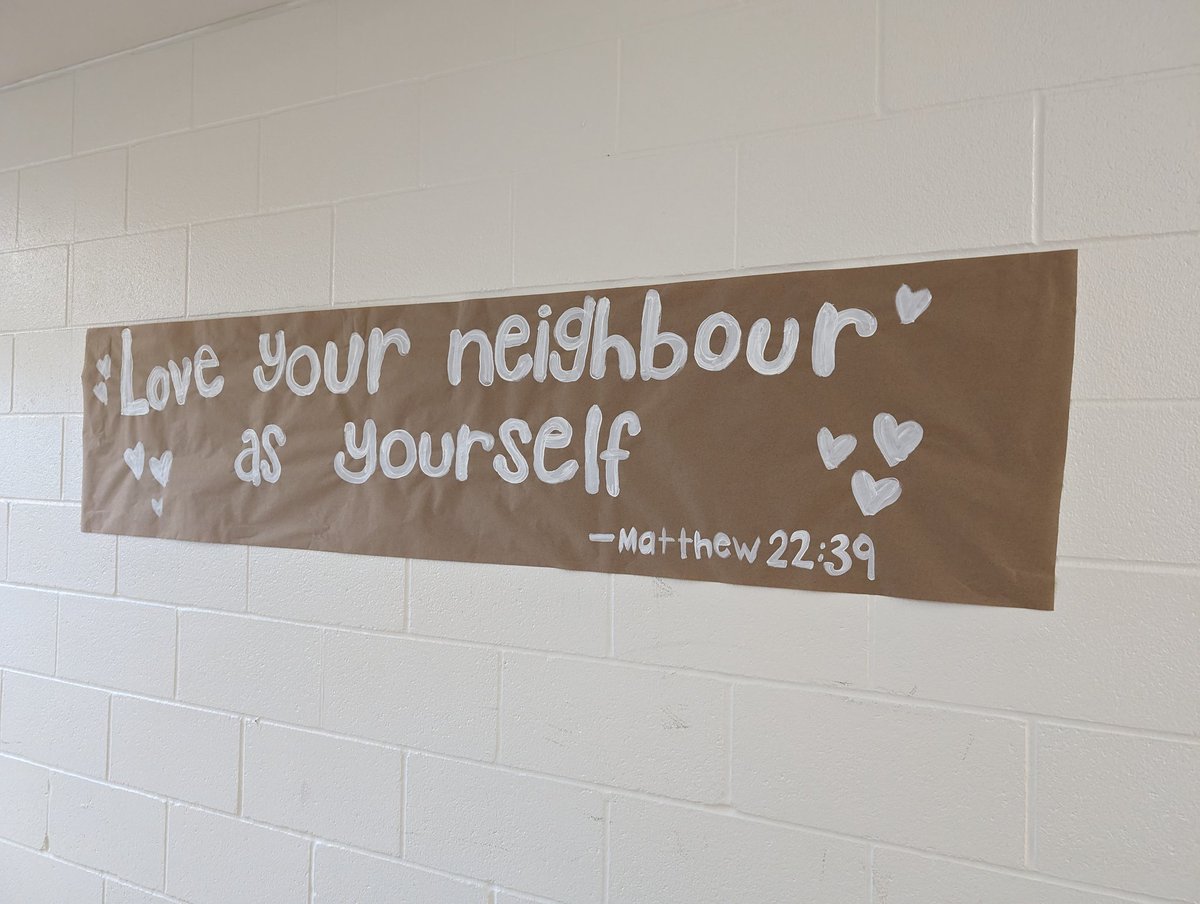 Love your neighbour
as yourself
-Matthew 22:39